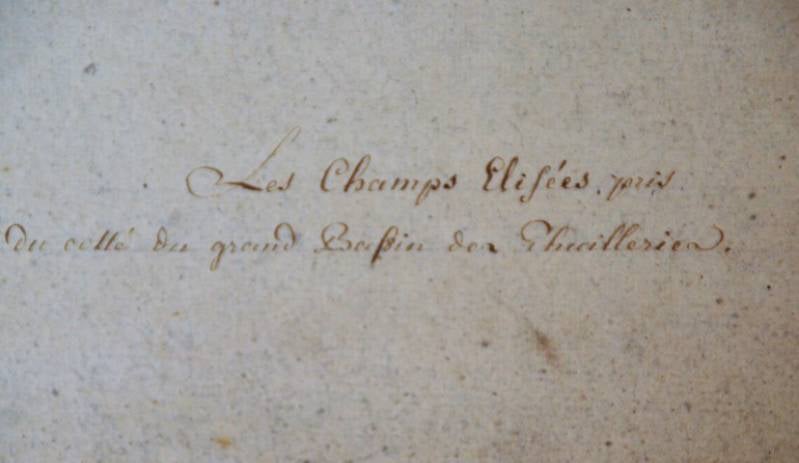 Les Champs Elisées, pris
du cotté du grand Bassin des Thuilleries.